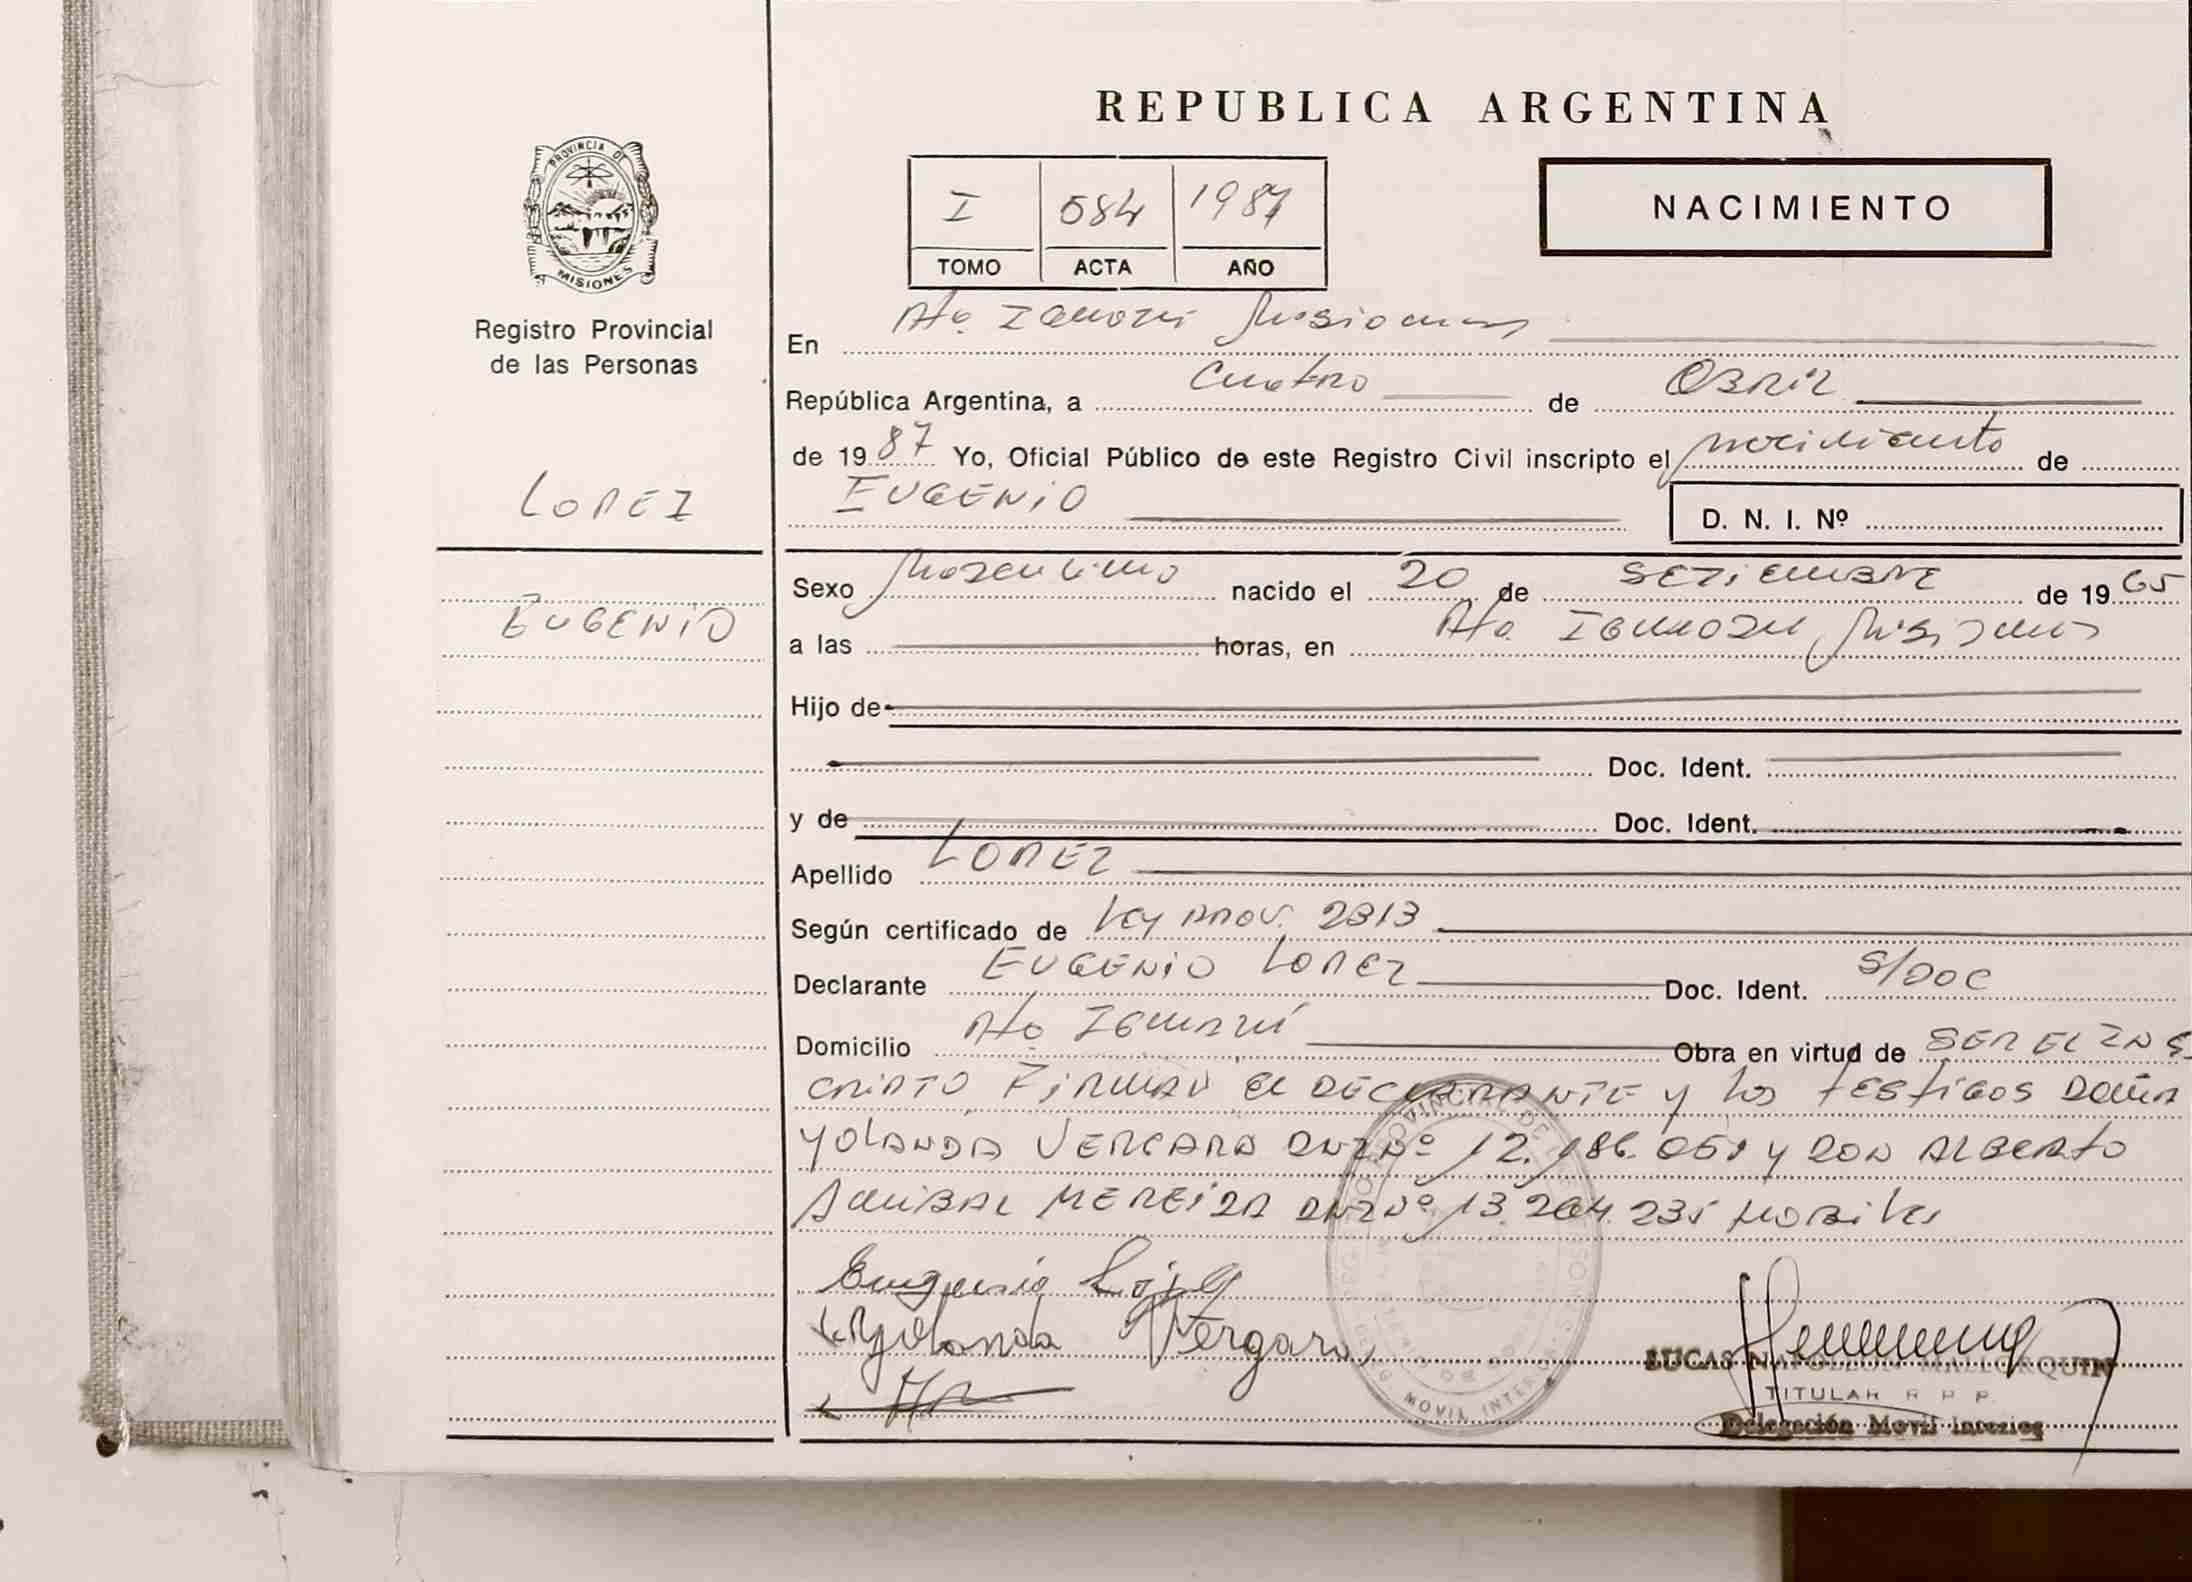 REPUBLICA ARGENTINA
PROVINCIA DE
MISIONES
Registro Provincial
de las Personas
I 584 1987
TOMO ACTA AÑO
NACIMIENTO
En Pto. Iguazú Misiones
República Argentina, a Cuatro de Abril
de 1987 Yo, Oficial Público de este Registro Civil inscripto el nacimiento de
EUGENIO
D. N. I. Nº
LOPEZ
EUGENIO
Sexo Masculino nacido el 20 de SETIEMBRE de 1965
a las horas, en Pto. Iguazu Misiones
Hijo de
Doc. Ident.
y de Doc. Ident.
Apellido LOPEZ
Según certificado de Ley PROV. 2313
Declarante EUGENIO LOPEZ Doc. Ident. S/DOC
Domicilio Pto Iguazú Obra en virtud de SER EL INS
CRIPTO FIRMAN El DECLARANTE y los testigos DOÑA
YOLANDA VERGARA DNI Nº 12.186.051 y DON ALBERTO
ANIBAL MEREIRA DNI Nº 13.264.235 HABILES
Eugenio López
Yolanda Vergara
LUCAS NAPOLEON MALLORQUIN
TITULAR R. P. P.
Delegación Movil Interior